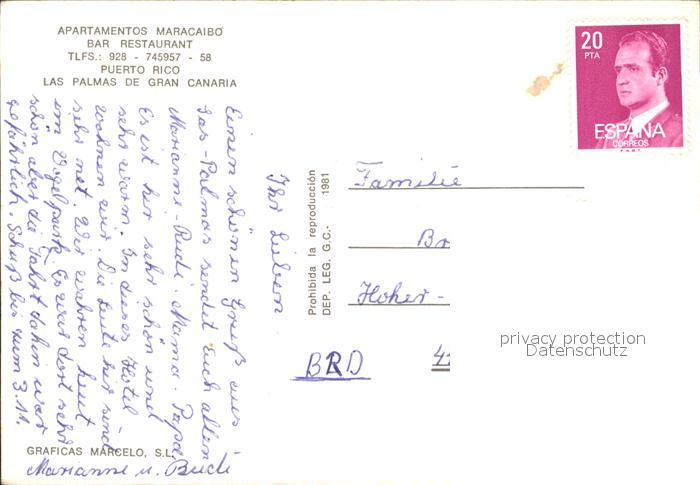 APARTAMENTOS MARACAIBO
BAR RESTAURANT
TLFS.: 928 - 745957 - 58
PUERTO RICO
LAS PALMAS DE GRAN CANARIA
Ihr Lieben
Einen schönen Gruß aus
Las-Palmas sendet Euch allen
Marianne-Rudi. Mama-Papa
Es ist hir sehr schön und
sehr warm. In dieses Hotel
wohnen wir. Die Leute hir sind
sehr net. Wir wahren heut
im Vogelpark. Es war dort sehr
schön aber die Fahrt dahin war
gefährlich. Schuß bis zum 3.11.
Marianne u. Rudi
GRAFICAS MARCELO, S.L.
Prohibida la reproducción
DEP. LEG. G.C.- 1981
20
PTA
ESPAÑA
CORREOS
F.N.M.T.
Familie
Br
Hoher-
BRD
privacy protection
Datenschutz